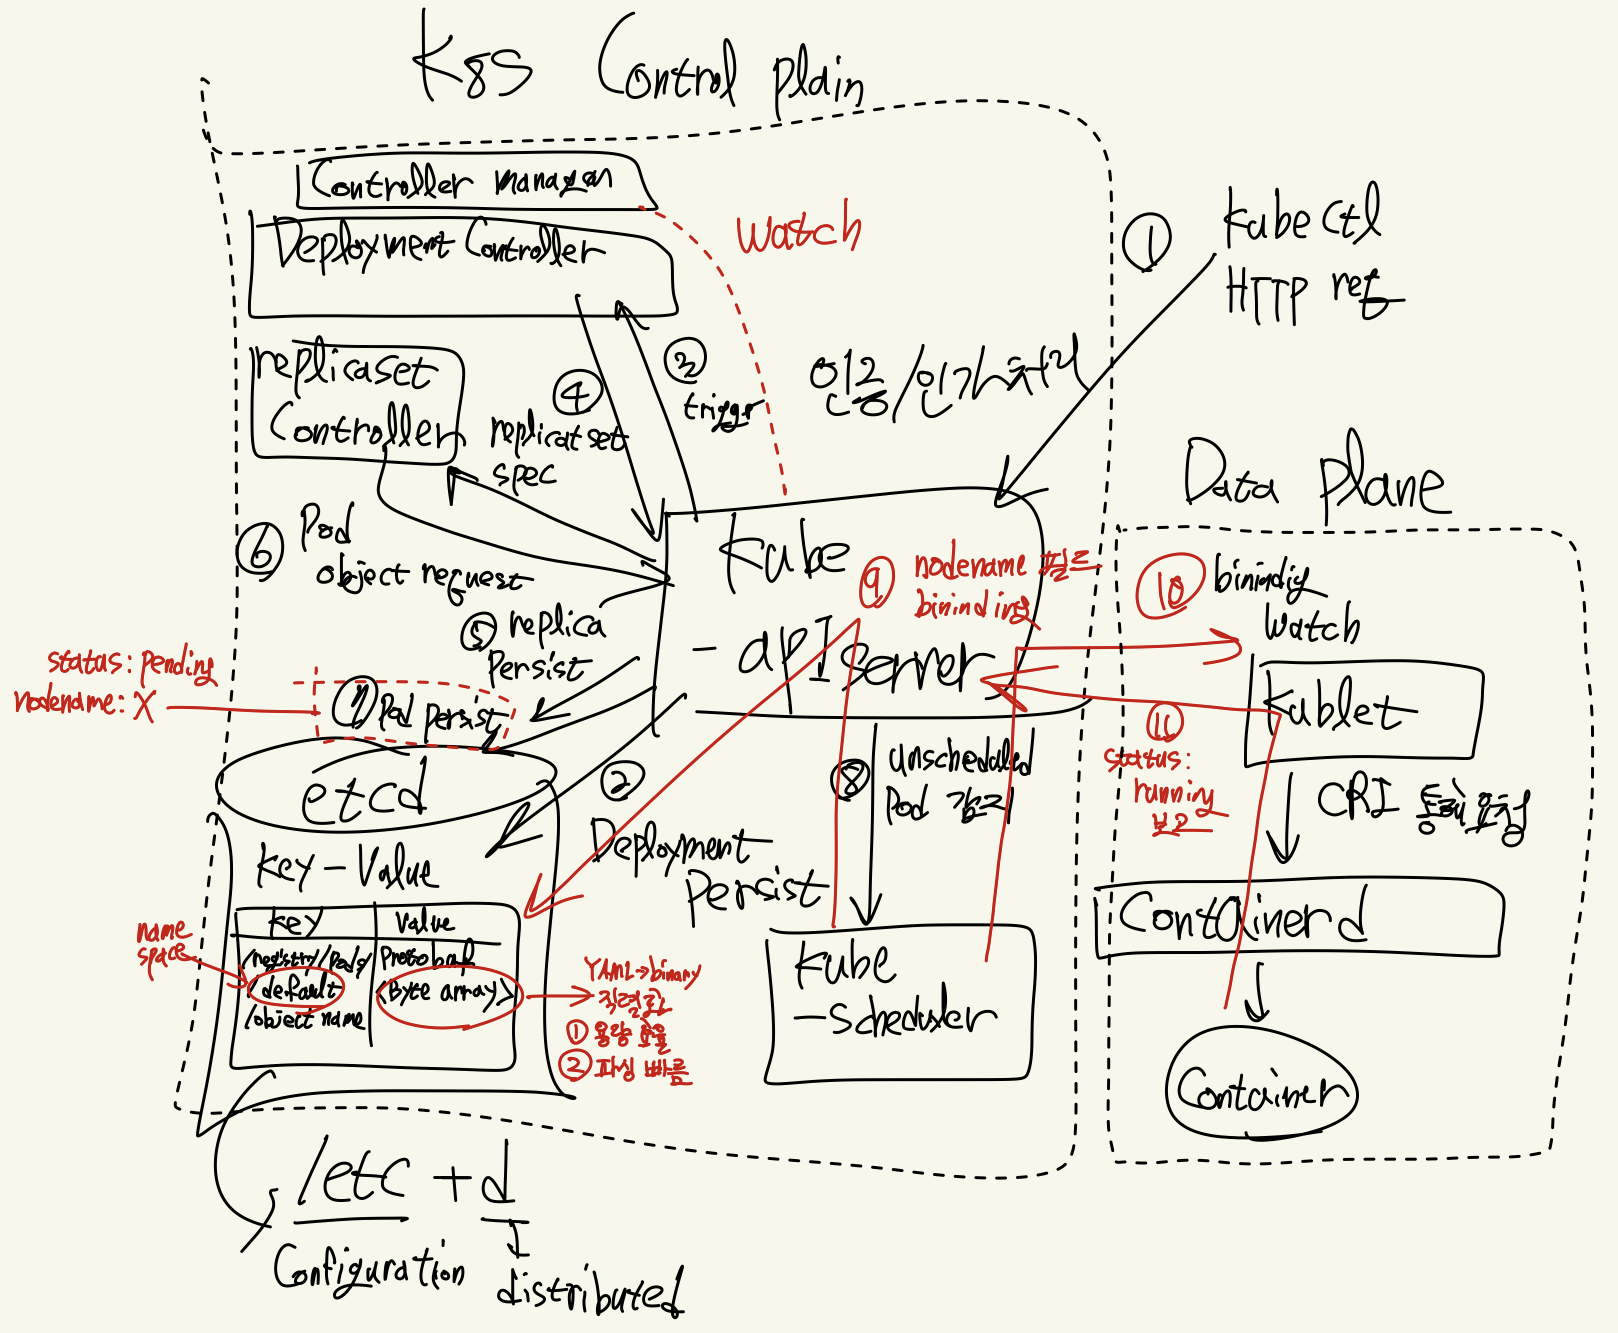 K8S Control plain
Controller manager
Deployment Controller
watch
①
kube Ctl
HTTP req
replicaset
Controller
④
replicat set
spec
③
trigger
인증/인가
Data Plane
⑥
Pod
object request
⑤ replica
Persist
kube
- apI server
⑨
nodename 필드
bininding
⑩
binindig
watch
status: pending
nodename: X
⑦ Pod persist
kublet
⑪
status:
running
보고
CRI
etcd
②
Deployment
Persist
⑧
unscheduled
Pod 감지
key - Value
key
Value
/registry/pods
/default
/object name
<Byte array>
name
space
YAML→binary
직렬화
① 용량 효율
② 파싱 빠름
kube
- scheduler
Containerd
Container
/etc + d
Configuration
distributed